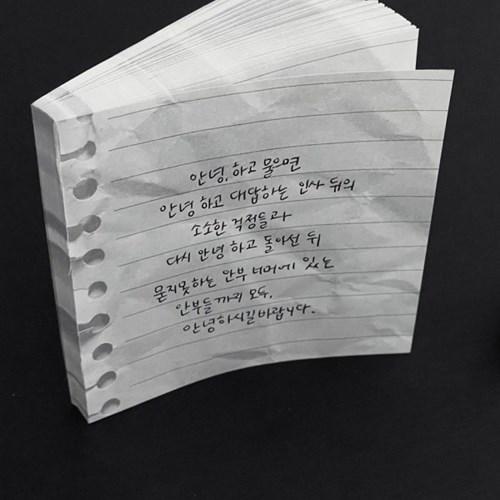 안녕, 하고 물으면
안녕 하고 대답하는 인사 뒤의
소소한 걱정들과
다시 안녕 하고 돌아선 뒤
묻지못하는 안부 너머에 있는
안부들까지 모두,
안녕하시길바랍니다.